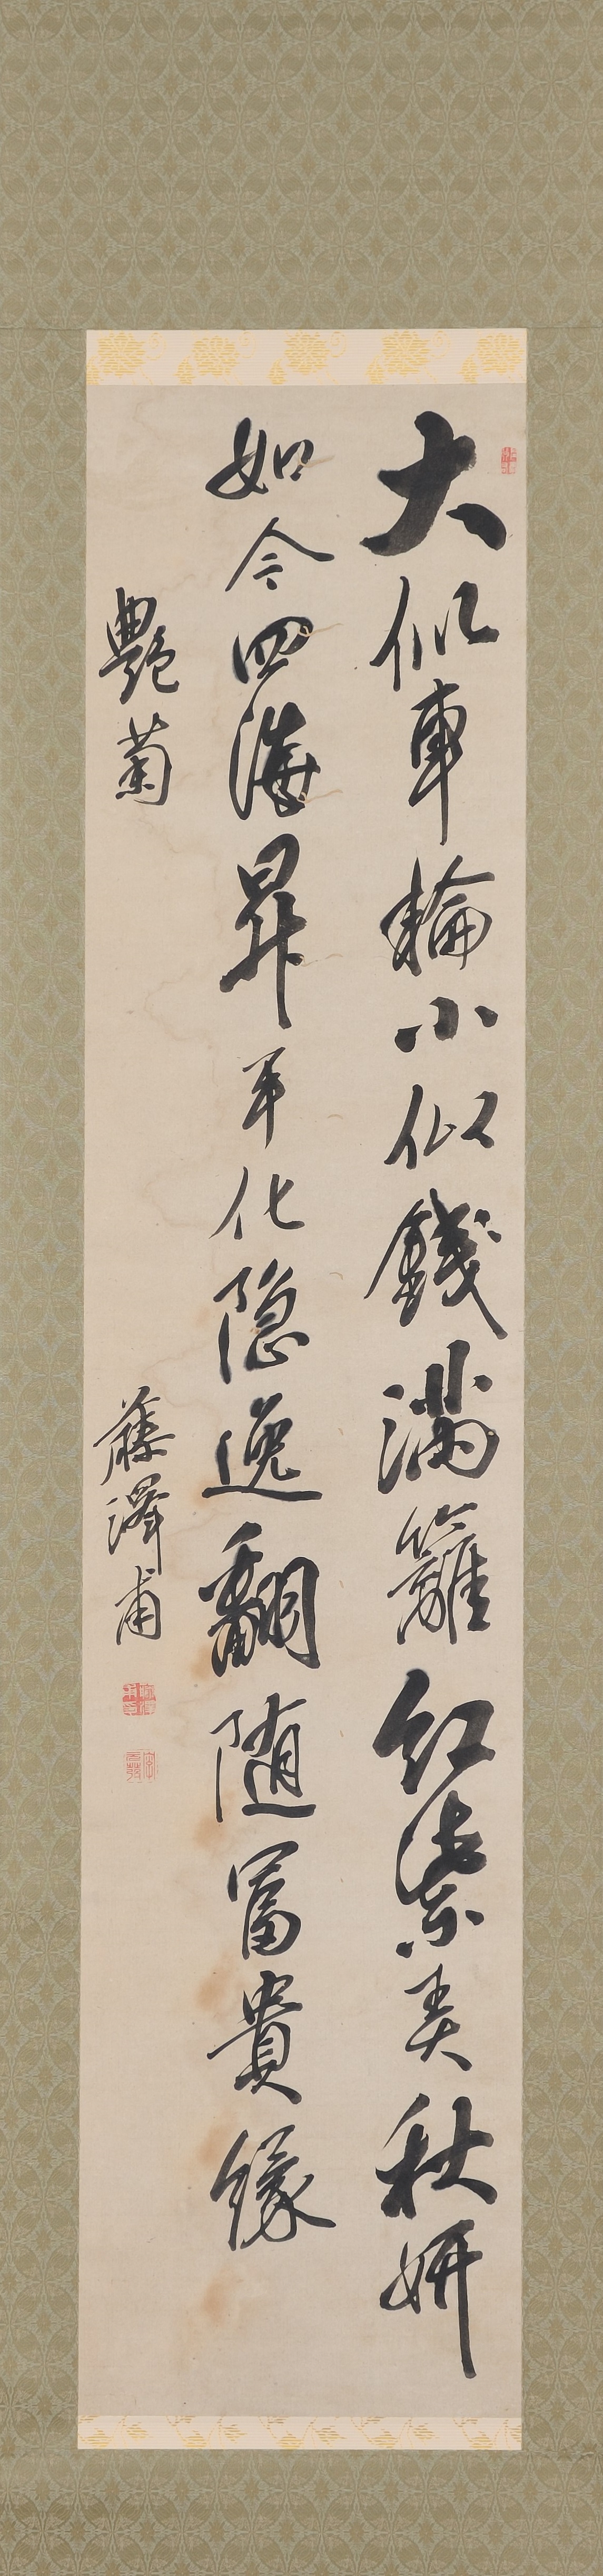 大似車輪小似錢滿籬紅紫美秋妍
如今四海昇平化隠逸翻随冨貴縁
艶菊
藤澤甫